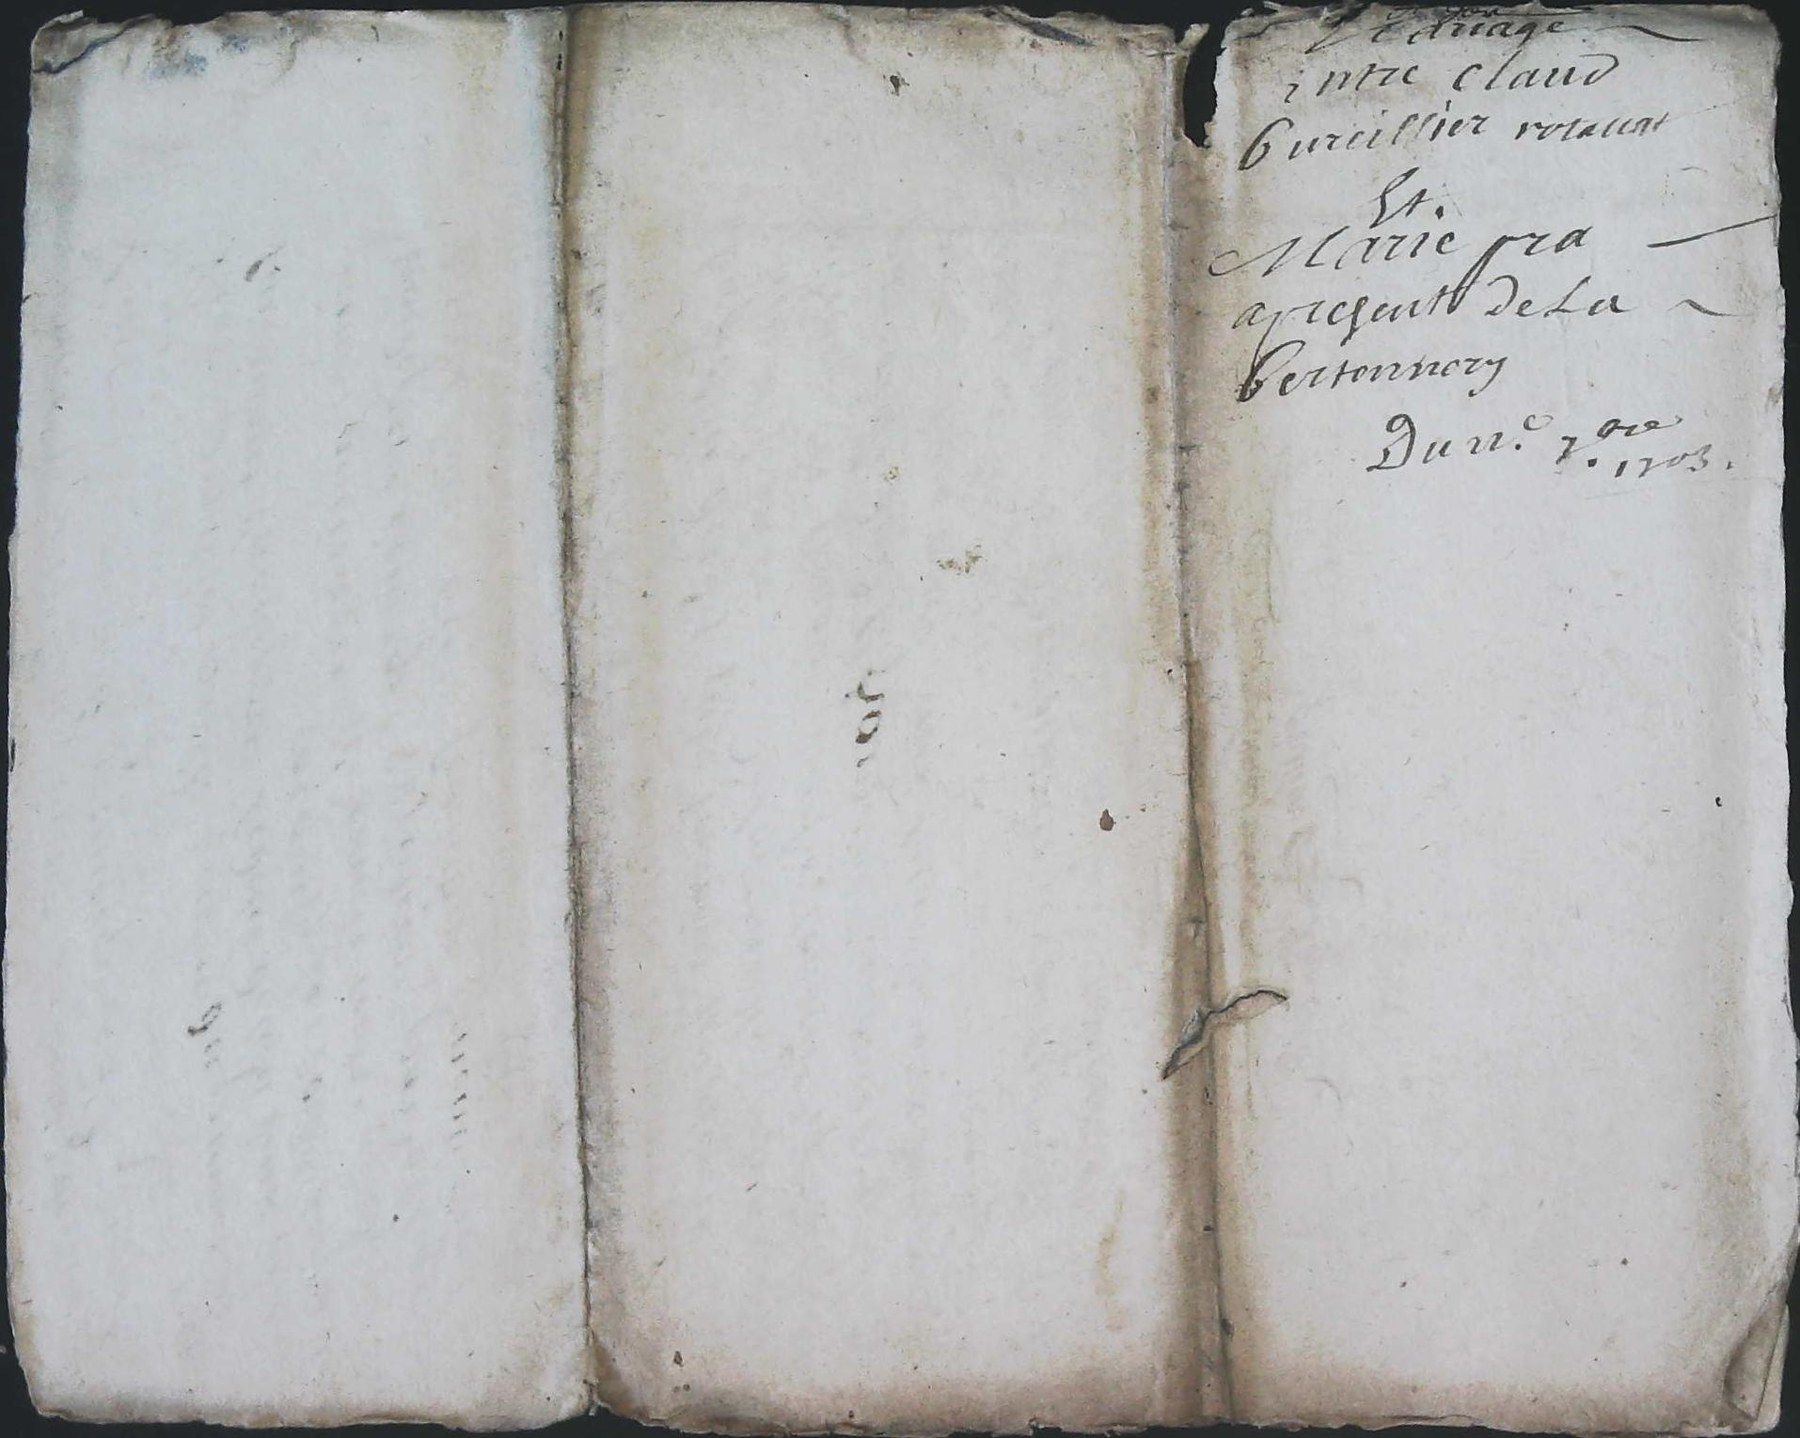 mariage
entre claud
Bureillier
Et.
Marie pra
apresent de La
bertonnery
Du 11.e 7.bre 1703.